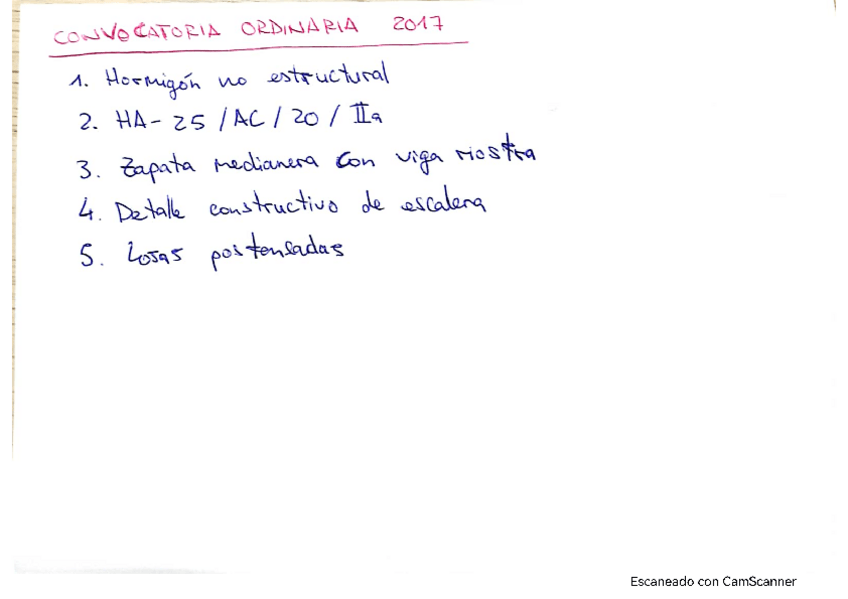 CONVOCATORIA ORDINARIA 2017
1. Hormigón no estructural
2. HA-25 /AC / 20 / IIa
3. Zapata medianera con viga riostra
4. Detalle constructivo de escalera
5. Losas postensadas
Escaneado con CamScanner